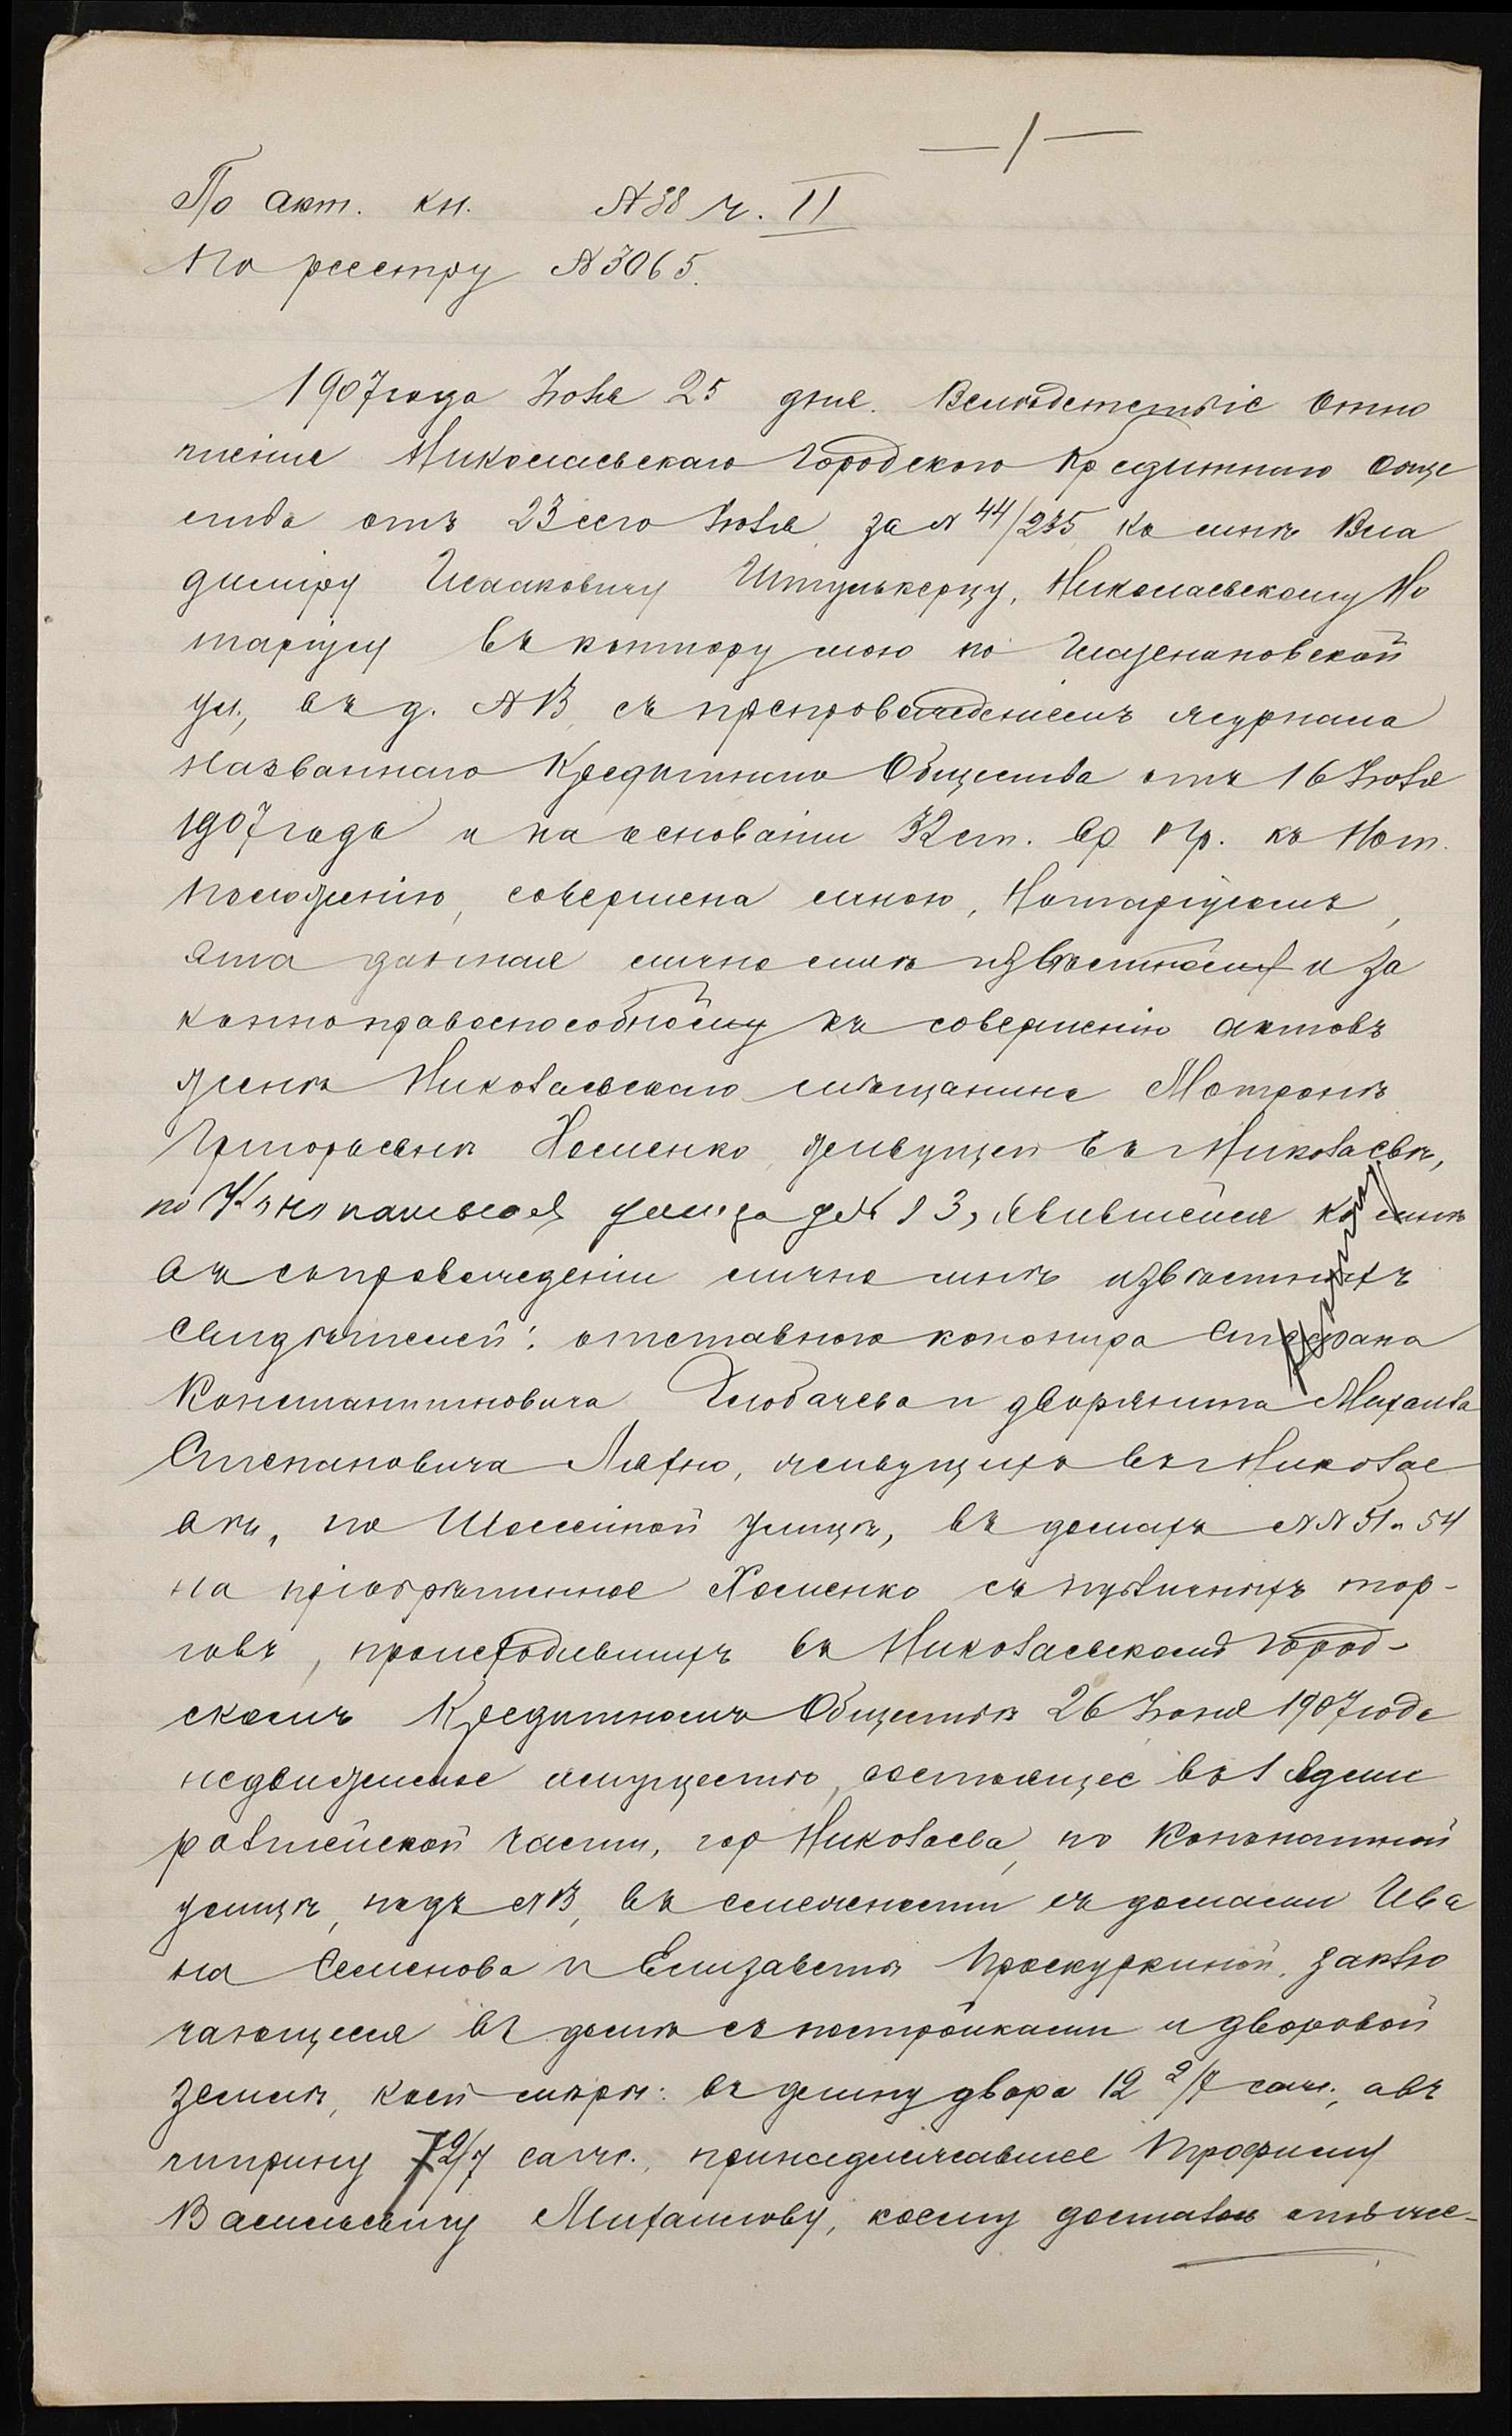 — 1 —
По акт. кн. № 38 ч. II
По реестру № 3065.
1907 года Іюля 25 дня. Вслѣдствіе отно
шенія Николаевскаго Городского Кредитнаго Обще
ства отъ 23 сего Іюля за № 44/235 ко мнѣ Вла
диміру Исааковичу Штульккерцу, Николаевскому Но
таріусу въ контору мою по
ул., въ д. № 13, съ препровожденіемъ журнала
названнаго Кредитнаго Общества отъ 16 Іюля
1907 года и на основаніи 32 ст. Вр. Пр. къ Нот.
положенію, совершена мною, Нотаріусомъ,
эта данная лично мнѣ извѣстной и за
конноправоспособной къ совершенію актовъ
женѣ Николаевскаго мѣщанина Матронѣ
Григорьевнѣ Хоменко, живущей въ Николаевѣ,
по улица д № 13, явившейся ко мнѣ
въ сопровожденіи лично мнѣ извѣстныхъ
свидѣтелей: отставного канонира Стефана
Константиновича и дворянина Михаила
Степановича Ляхно, живущихъ въ Николае
вѣ, по Шоссейной улицѣ, въ домахъ №№ 51 и 54
на пріобрѣтенное Хоменко съ публичныхъ тор-
говъ, происходившихъ въ Николаевскомъ Город-
скомъ Кредитномъ Обществѣ 26 Іюня 1907 года
недвижимое имущество, состоящее въ 1 Адми
ралтейской части, гор Николаева, по Канатной
улицѣ, подъ № 13, въ смежности съ домами Ива
на Семенова и Елизаветы Проскуркиной, заклю
чающееся въ домѣ съ постройками и дворовой
землѣ, коей мѣры: въ длину двора 12 2/7 саж., а въ
ширину 7 2/7 саж., принадлежавшее Трофиму
Васильевичу Михайлову, коему